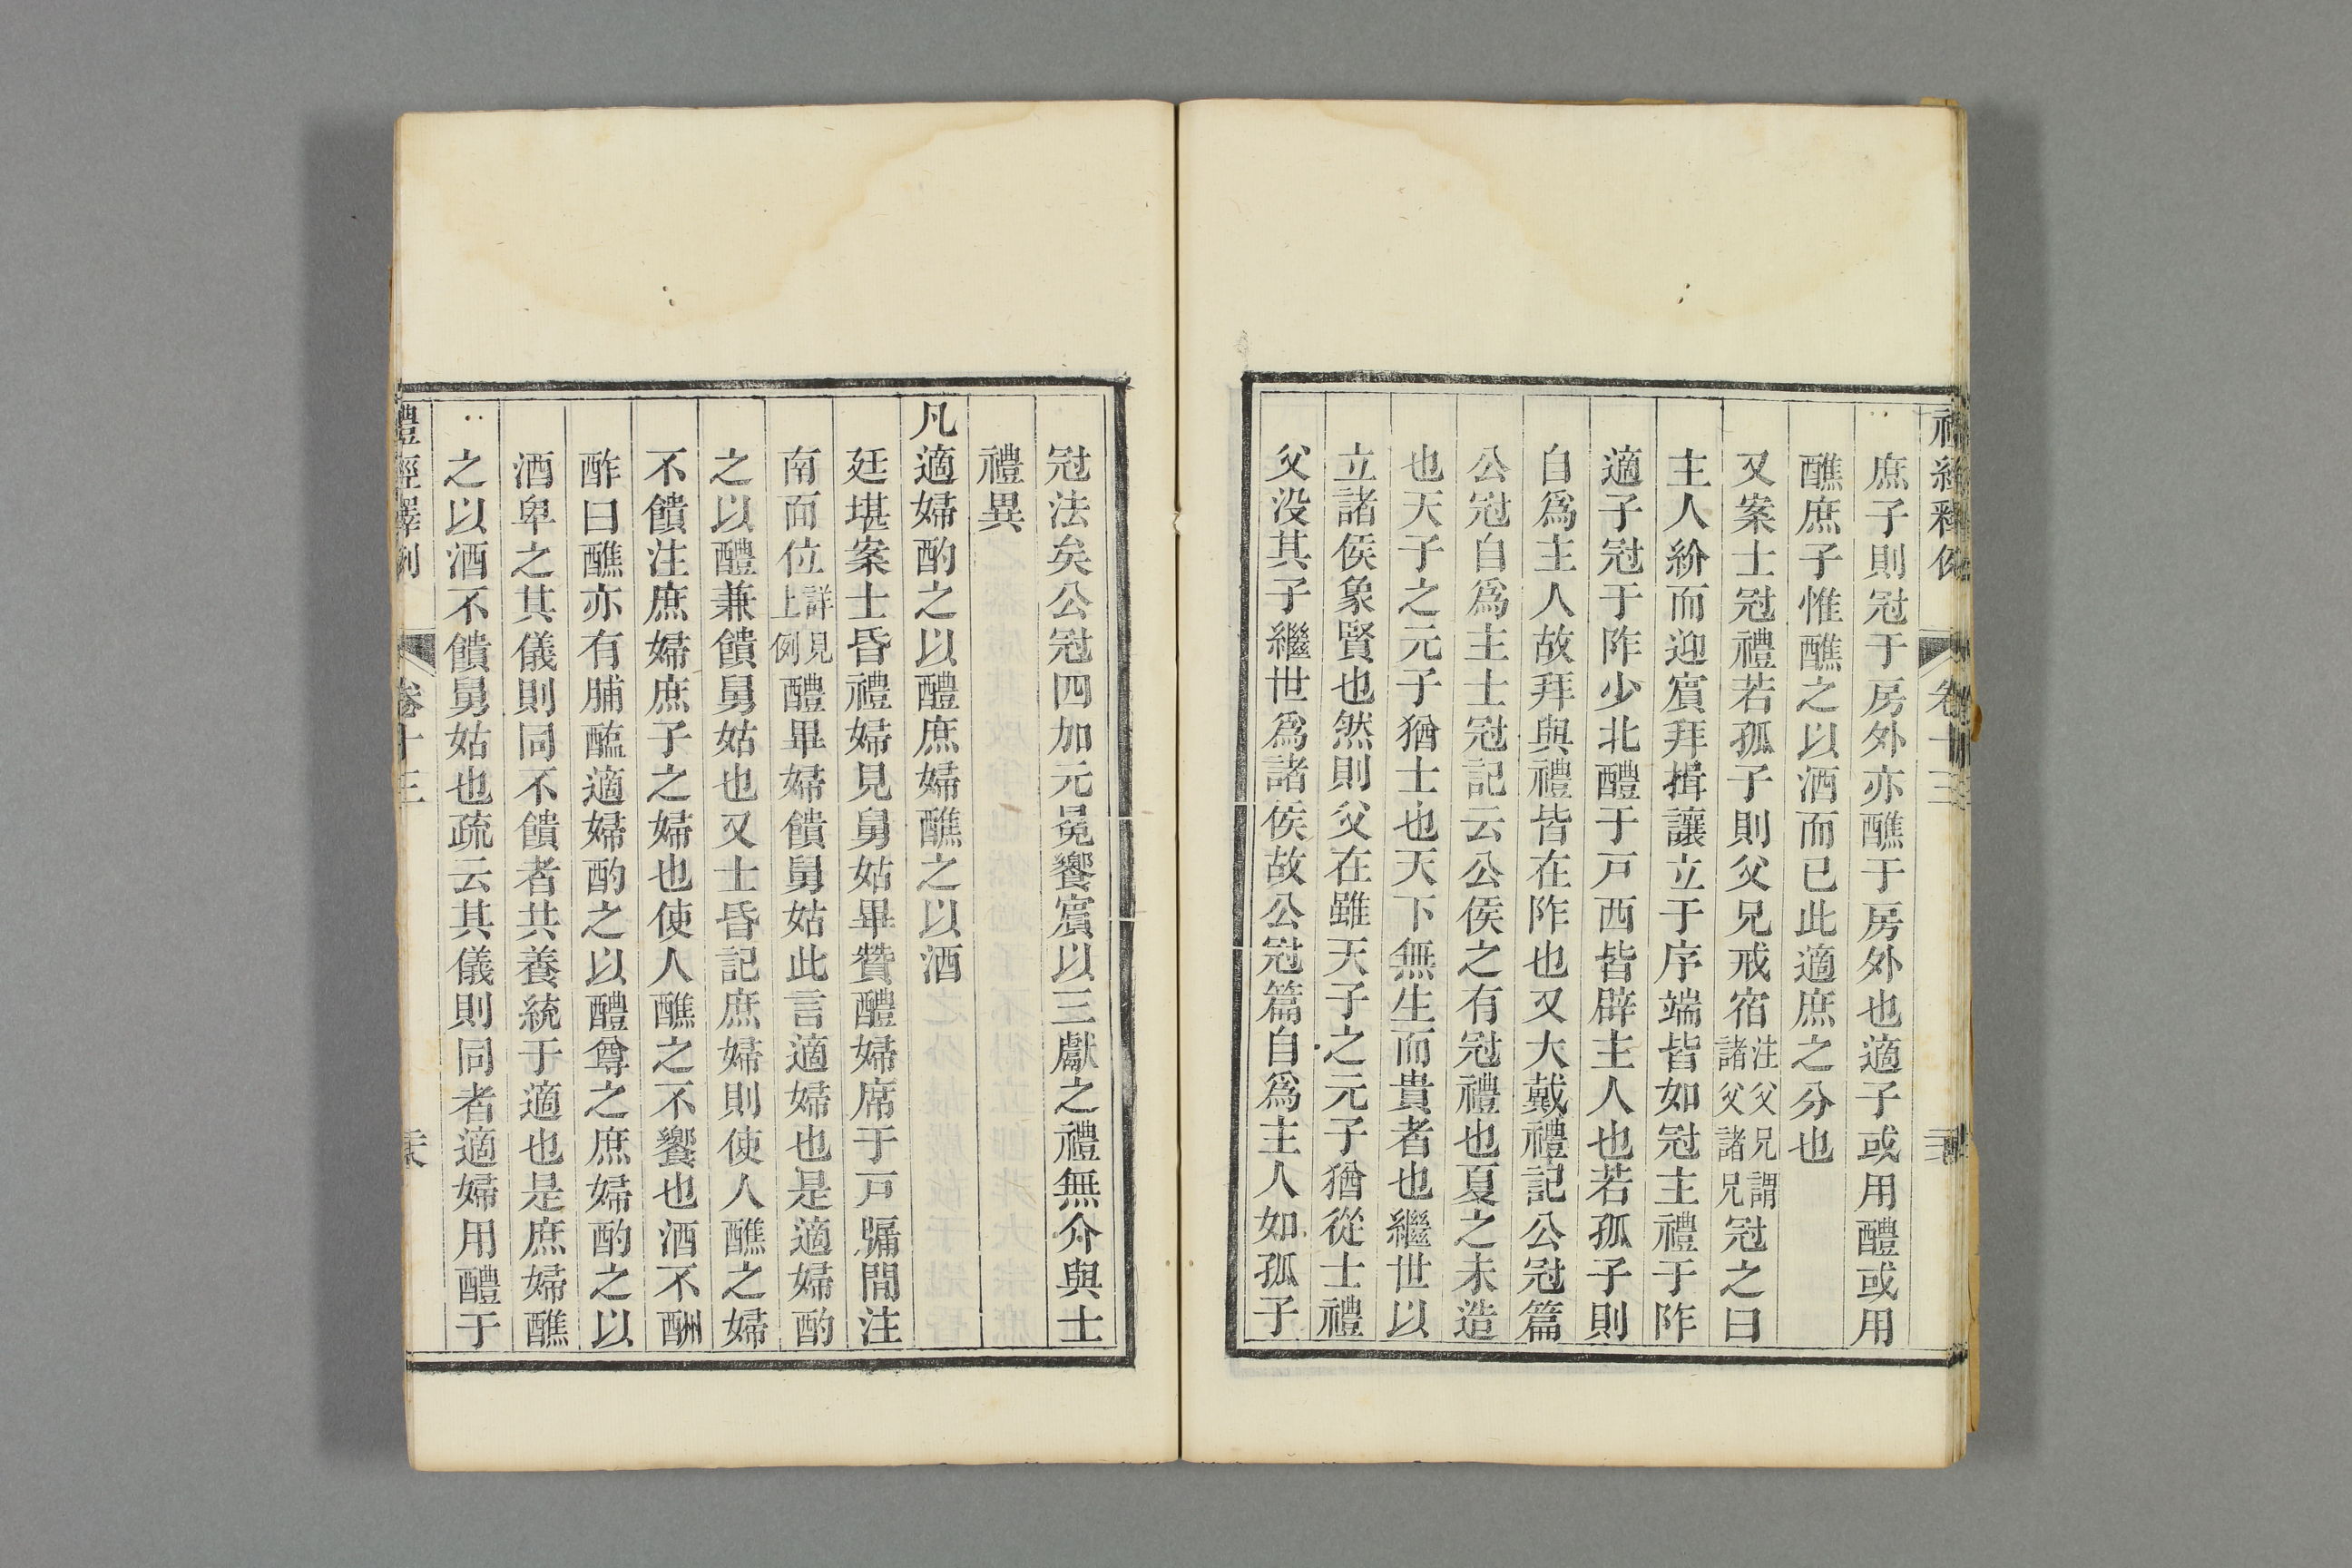 庶子則冠于房外亦醮于房外也適子或用醴或用
醮庶子惟醮之以酒而已此適庶之分也
又案士冠禮若孤子則父兄戒宿注父兄謂諸父諸兄冠之日
主人紒而迎賓拜揖讓立于序端皆如冠主禮于阼
適子冠于阼少北醴于戸西皆辟主人也若孤子則
自爲主人故拜與禮皆在阼也又大戴禮記公冠篇
公冠自爲主士冠記云公侯之有冠禮也夏之末造
也天子之元子猶士也天下無生而貴者也繼世以
立諸侯象賢也然則父在雖天子之元子猶從士禮
父没其子繼世爲諸侯故公冠篇自爲主人如孤子
冠法矣公冠四加元冕饗賓以三獻之禮無介與士
禮異
凡適婦酌之以醴庶婦醮之以酒
廷堪案士昏禮婦見舅姑畢贊醴婦席于戸牖間注
南面位詳見上例醴畢婦饋舅姑此言適婦也是適婦酌
之以醴兼饋舅姑也又士昏記庶婦則使人醮之婦
不饋注庶婦庶子之婦也使人醮之不饗也酒不酬
酢曰醮亦有脯醢適婦酌之以醴尊之庶婦酌之以
酒卑之其儀則同不饋者共養統于適也是庶婦醮
之以酒不饋舅姑也疏云其儀則同者適婦用醴于
禮經釋例 卷十三